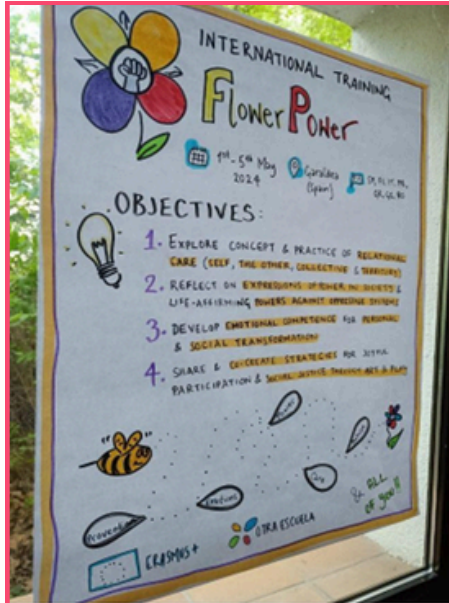 INTERNATIONAL TRAINING
Flower Power
1st - 5th May
2024
Garaldea
(Spain)
OBJECTIVES:
1. EXPLORE CONCEPT & PRACTICE OF RELATIONAL
CARE (SELF, THE OTHER, COLLECTIVE & TERRITORY)
2. REFLECT ON EXPRESSIONS OF POWER IN SOCIETY &
LIFE-AFFIRMING POWERS AGAINST OPPRESSIVE SYSTEMS
3. DEVELOP EMOTIONAL COMPETENCE FOR PERSONAL
& SOCIAL TRANSFORMATION
4. SHARE & CO-CREATE STRATEGIES FOR JOYFUL
PARTICIPATION & SOCIAL JUSTICE THROUGH ART & PLAY
& ALL
OF YOU!!
ERASMUS+
OTRA ESCUELA